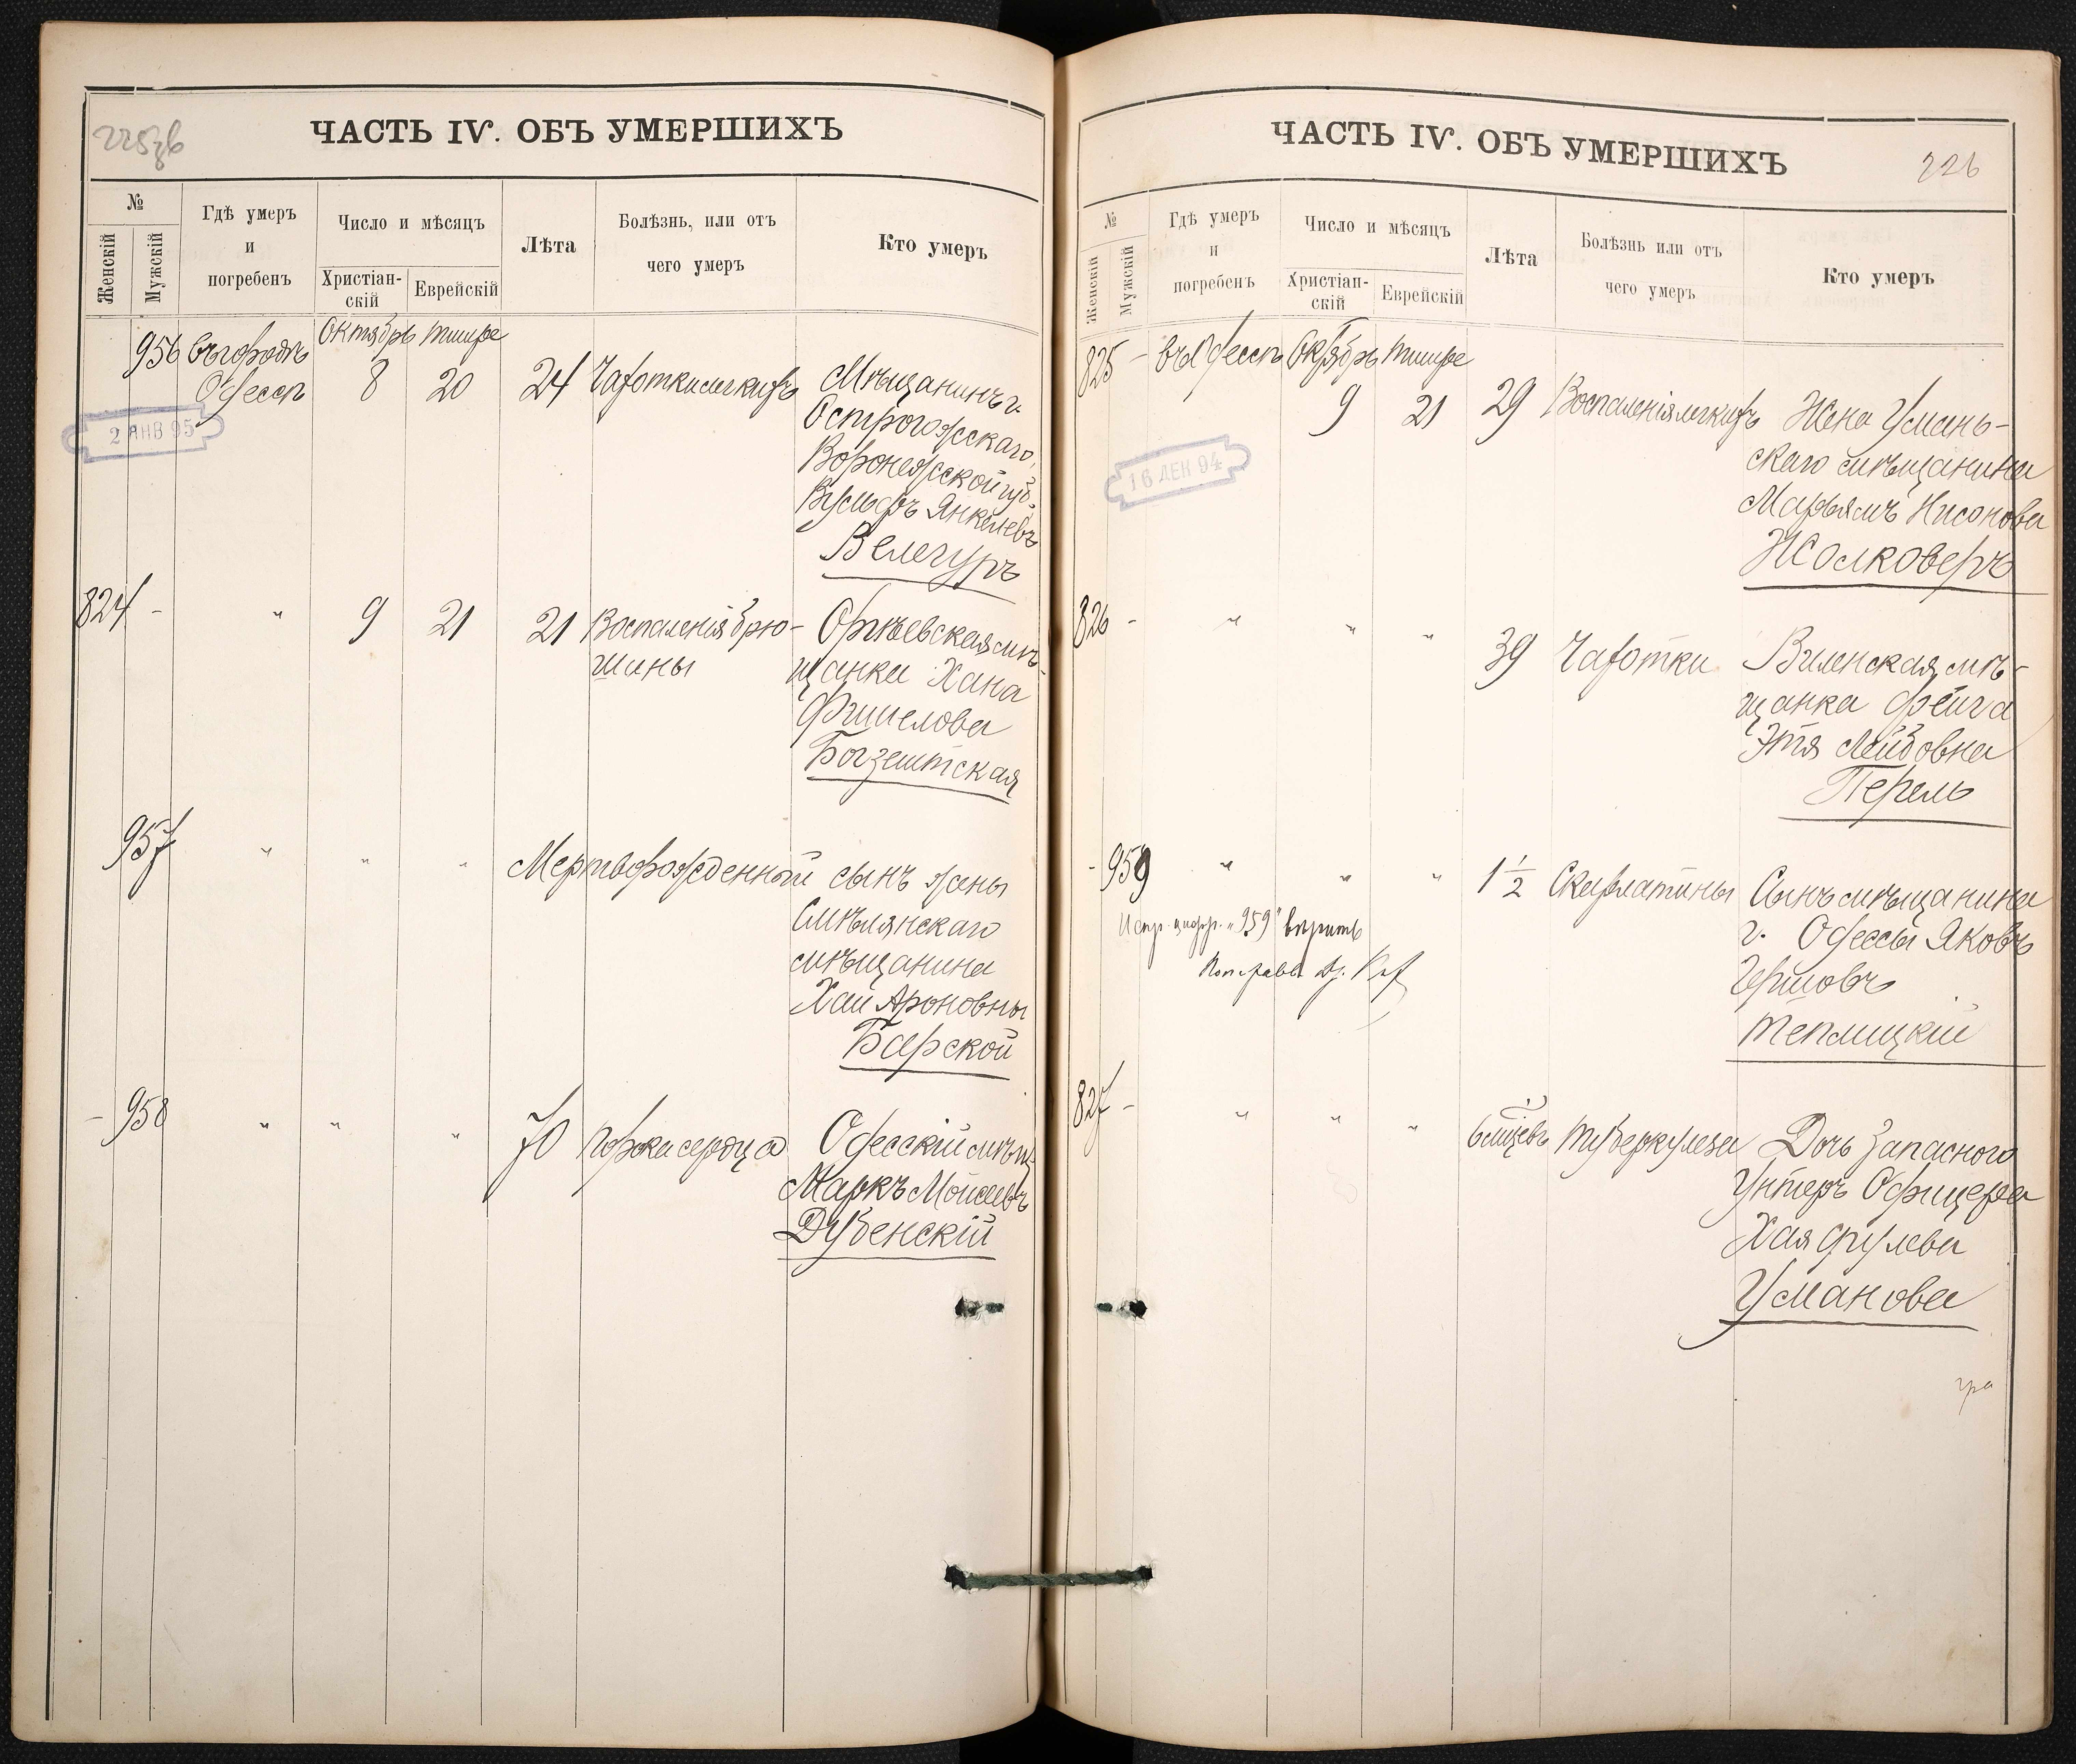 225зв
ЧАСТЬ IV. ОБЪ УМЕРШИХЪ
№
Женскій
Мужскій
Гдѣ умеръ
и
погребенъ
Число и мѣсяцъ
Христіан-
скій
Еврейскій
Лѣта
Болѣзнь, или отъ
чего умеръ
Кто умеръ
956 въ городѣ Октябрь тишре
Одессѣ 8 20 24 Чахотки легкихъ Мѣщанинъ г.
2 ЯНВ 95
Острогожскаго,
Воронежской губ.
Вульфъ Янкелевъ
Велегуръ
824 - " 9 21 21 Воспаленія брю- Оргѣевская мѣ-
шины щанка Хана
Фишелова
Богзештская
957 " " " Мертворожденный сынъ жены
Смѣлянскаго
мѣщанина
Хаи Ароновны
Барской
- 958 " " " 70 порока сердца Одесскій мѣщ.
Маркъ Мойсеевъ
Дубенскій
ЧАСТЬ IV. ОБЪ УМЕРШИХЪ
226
№
Женскій
Мужскій
Гдѣ умеръ
и
погребенъ
Число и мѣсяцъ
Христіан-
скій
Еврейскій
Лѣта
Болѣзнь или отъ
чего умеръ
Кто умеръ
825 - въ Одессѣ Октябрь тишре
9 21 29 Воспаленія легкихъ Жена Умань-
16 ДЕК 94
скаго мѣщанина
Марьямъ Нисонова
Жолковеръ
826 - " " " 39 Чахотки Виленская мѣ-
щанка Фейга
Этя Лейбовна
Перель
- 959 " " " 1 1/2 Скарлатины Сынъ мѣщанина
Испр. цифр. "959" вѣрить
г. Одессы Яковъ
Гершовъ
Теплицкій
827 - " " " 6 мѣсяцевъ туберкулеза Дочь Запасного
Унтеръ Офицера
Хая Срулева
Уманова